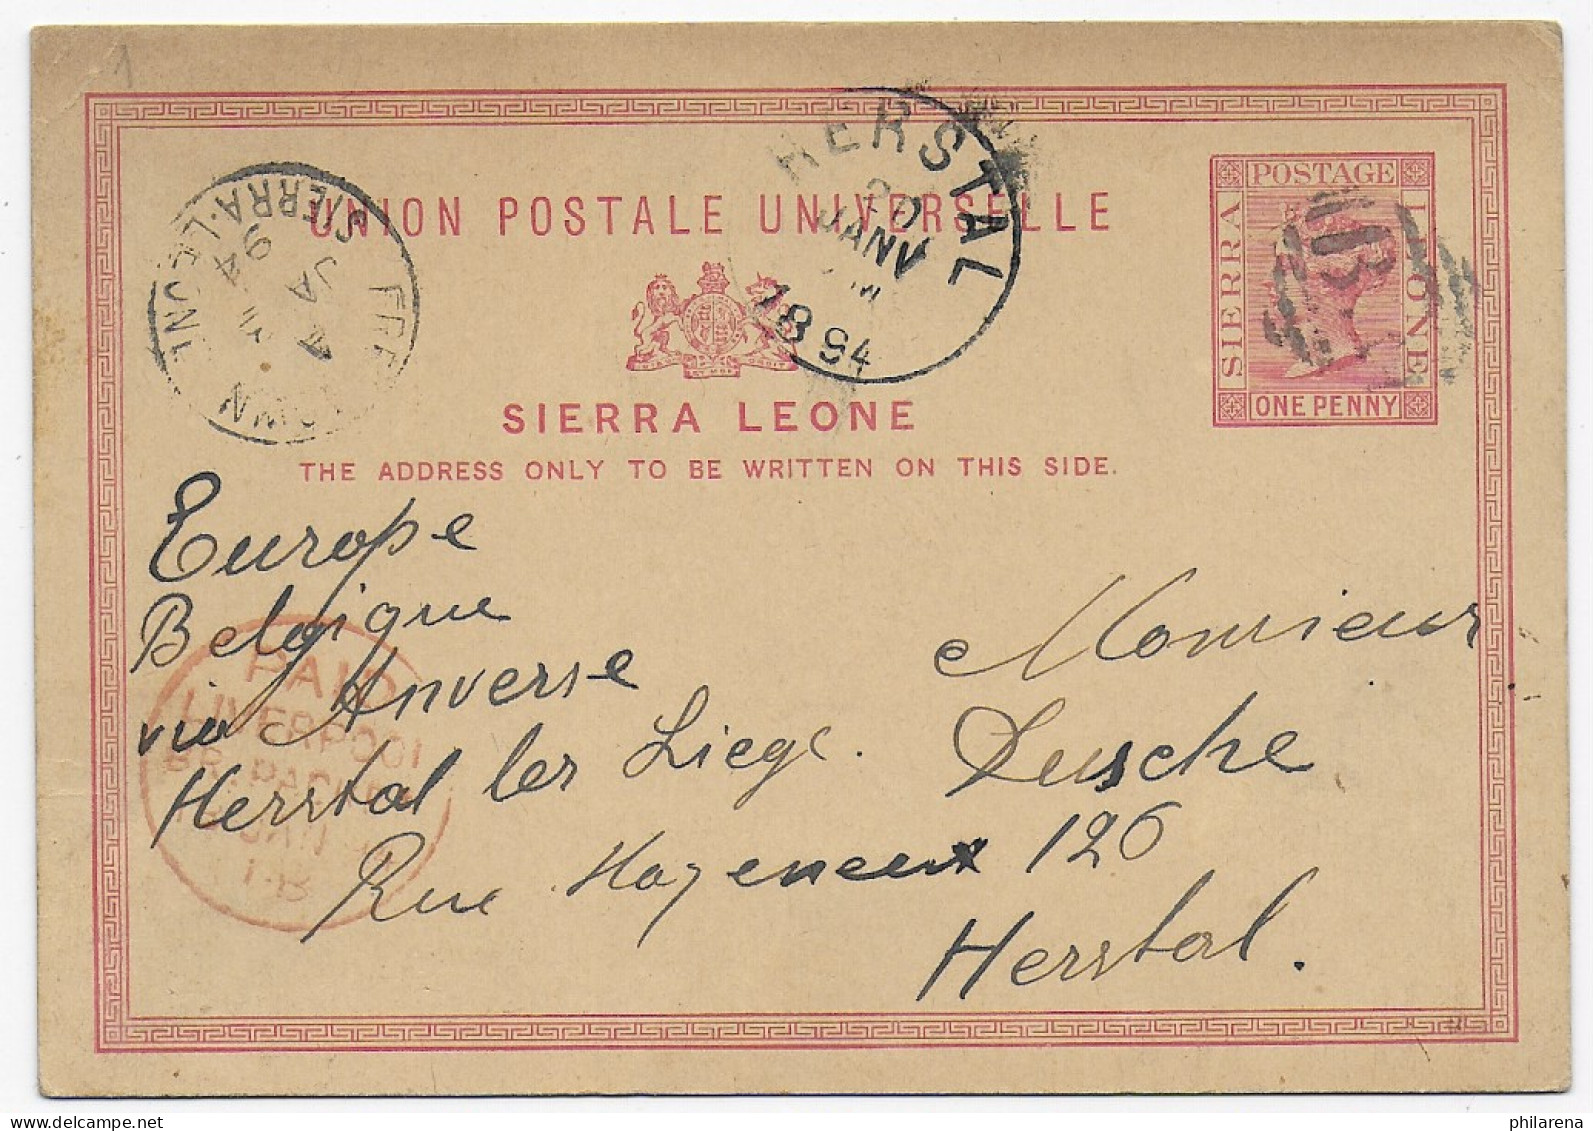 1
UNION POSTALE UNIVERSELLE
SIERRA LEONE
THE ADDRESS ONLY TO BE WRITTEN ON THIS SIDE.
POSTAGE
SIERRA
LEONE
ONE PENNY
SIERRA·LEONE
FREETOWN
A
JA 4
94
HERSTAL
20
JANV
1894
PAID
LIVERPOOL
BR. PACKET
JAN
Europe
Belgique
via Anverse
Herstal lez Liege.
Rue Hayeneux 126
Monsieur
Dusche
Herstal.
philarena